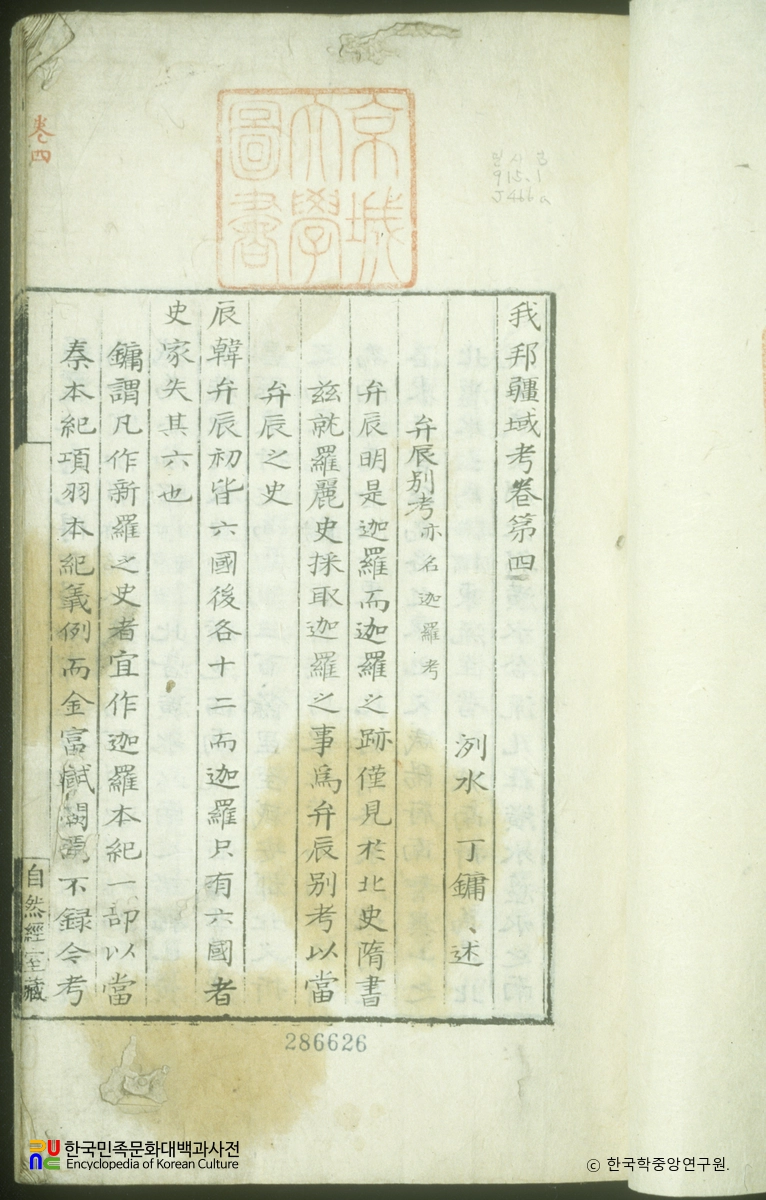 卷四
京城
大學
圖書
915.1
J466a
我邦疆域考卷第四
洌水 丁鏞、述
弁辰別考亦名迦羅考
弁辰明是迦羅而迦羅之跡僅見於北史隋書
玆就羅麗史採取迦羅之事爲弁辰別考以當
弁辰之史
辰韓弁辰初皆六國後各十二而迦羅只有六國者
史家失其六也
鏞謂凡作新羅之史者宜作迦羅本紀一部以當
秦本紀項羽本紀義例而金富軾闕焉不録今考
自然經室藏
286626
한국민족문화대백과사전
Encyclopedia of Korean Culture
© 한국학중앙연구원.